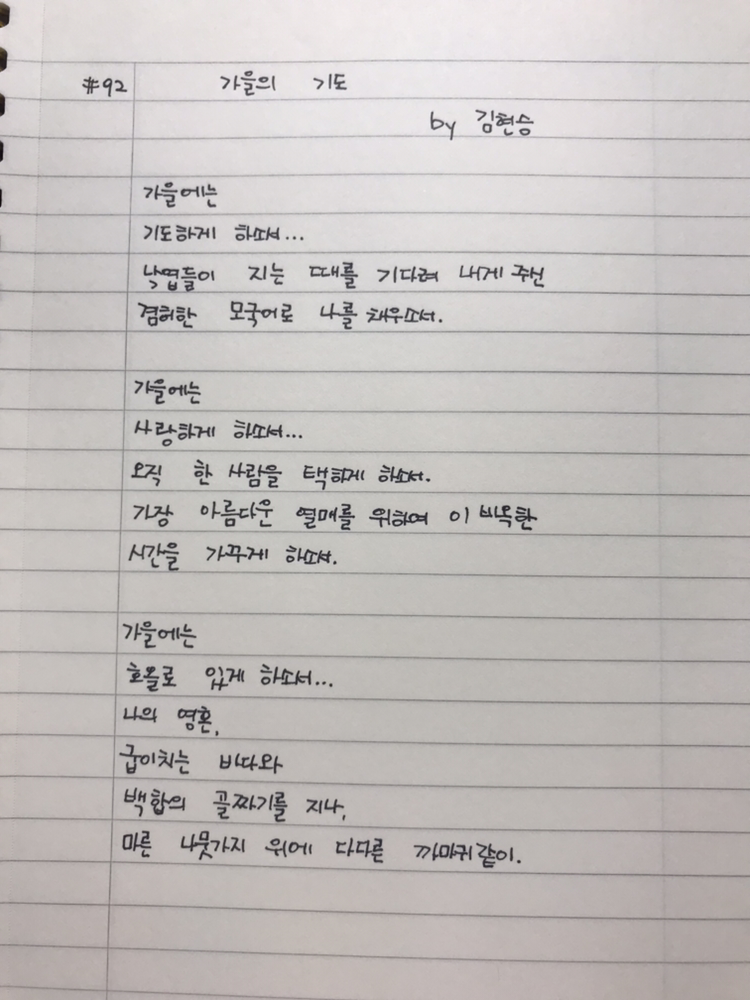 #92 가을의 기도
by 김현승
가을에는
기도하게 하소서...
낙엽들이 지는 때를 기다려 내게 주신
겸허한 모국어로 나를 채우소서.
가을에는
사랑하게 하소서...
오직 한 사람을 택하게 하소서.
가장 아름다운 열매를 위하여 이 비옥한
시간을 가꾸게 하소서.
가을에는
호올로 있게 하소서...
나의 영혼,
굽이치는 바다와
백합의 골짜기를 지나,
마른 나뭇가지 위에 다다른 까마귀같이.